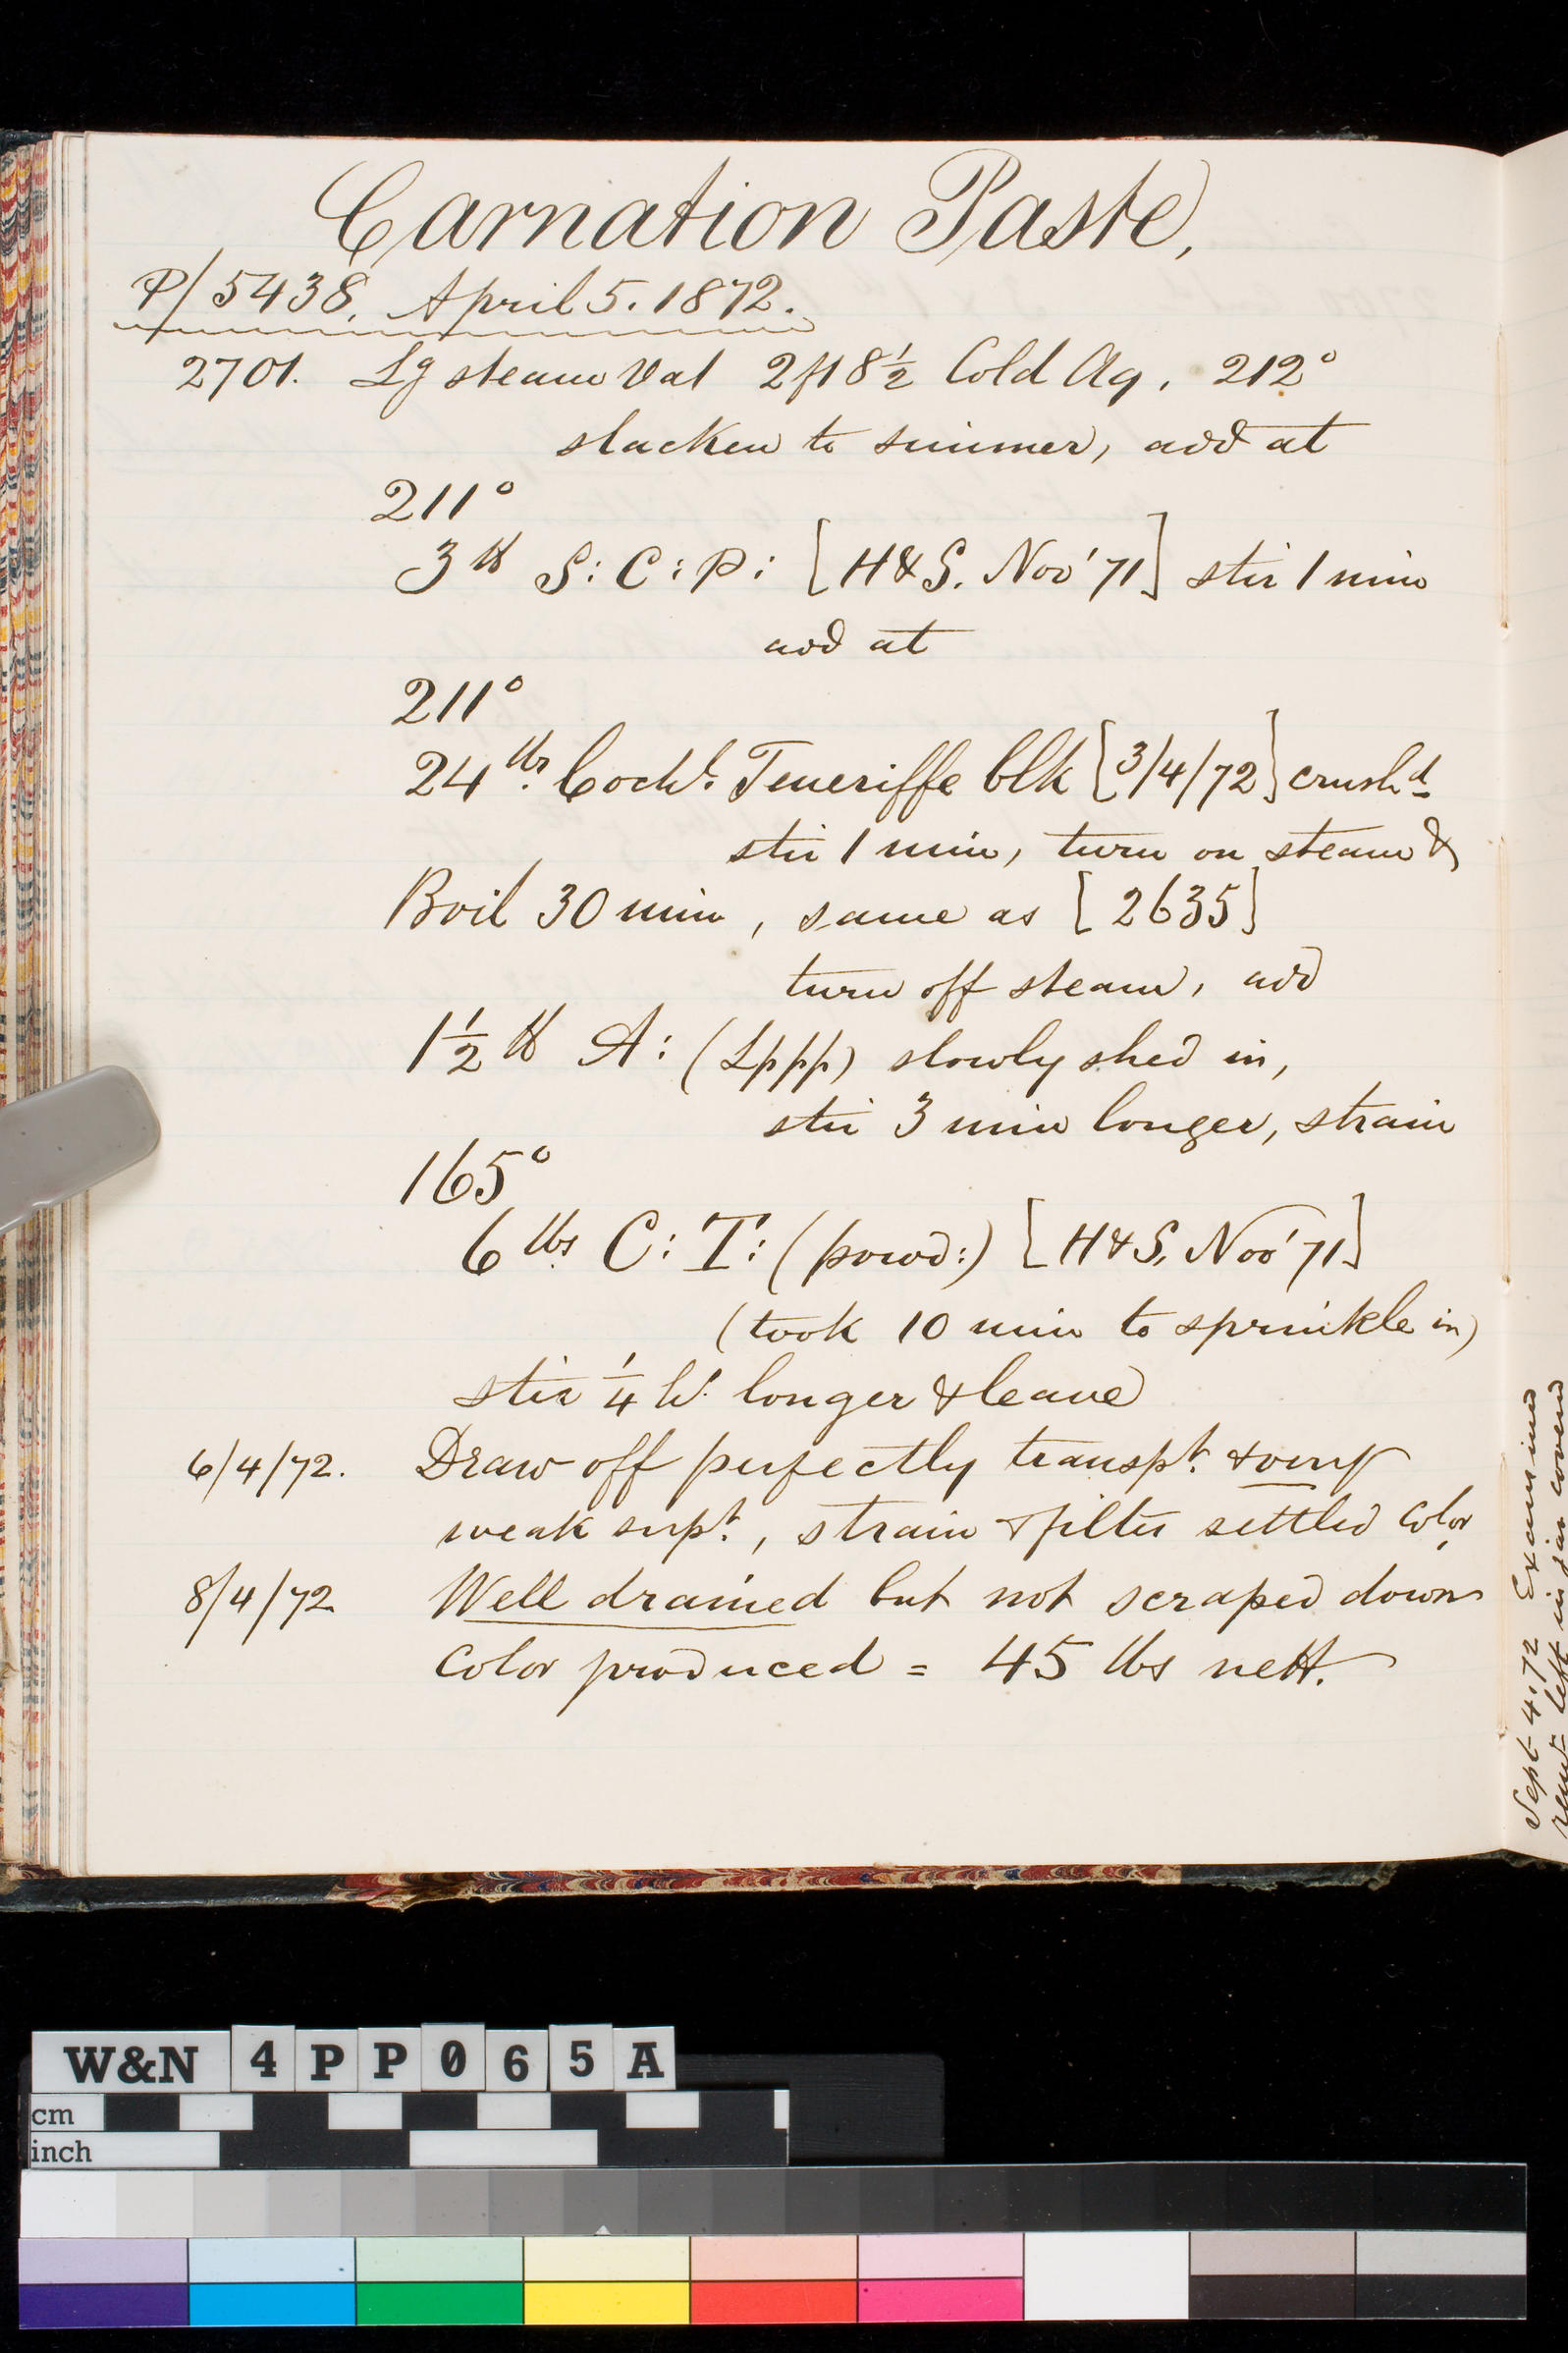 Carnation Paste,
P/5438. April 5. 1872.
2701. Lg steam Vat 2ft 8½ Cold Aq. 212°
slacken to simmer, add at
211°
3 lb S: C: P: [H&S. Nov' 71] stir 1 min
add at
211°
24 lbs. Cochl. Teneriffe blk [3/4/72] crushd
stir 1 min, turn on steam &
Boil 30 min, same as [2635]
turn off steam, add
1½ lb A: (Lppp) slowly shed in,
stir 3 min longer, strain
165°
6 lbs. C: T: (powd:) [H&S. Nov' 71]
(took 10 min to sprinkle in)
stir ¼ hr longer & leave
6/4/72. Draw off perfectly transpt. & very
weak supt., strain & filter settled color,
8/4/72 Well drained but not scraped down
Color produced = 45 lbs nett.
Sept 4. 72 Examined
left in jar covered
W&N 4PP065A
cm
inch